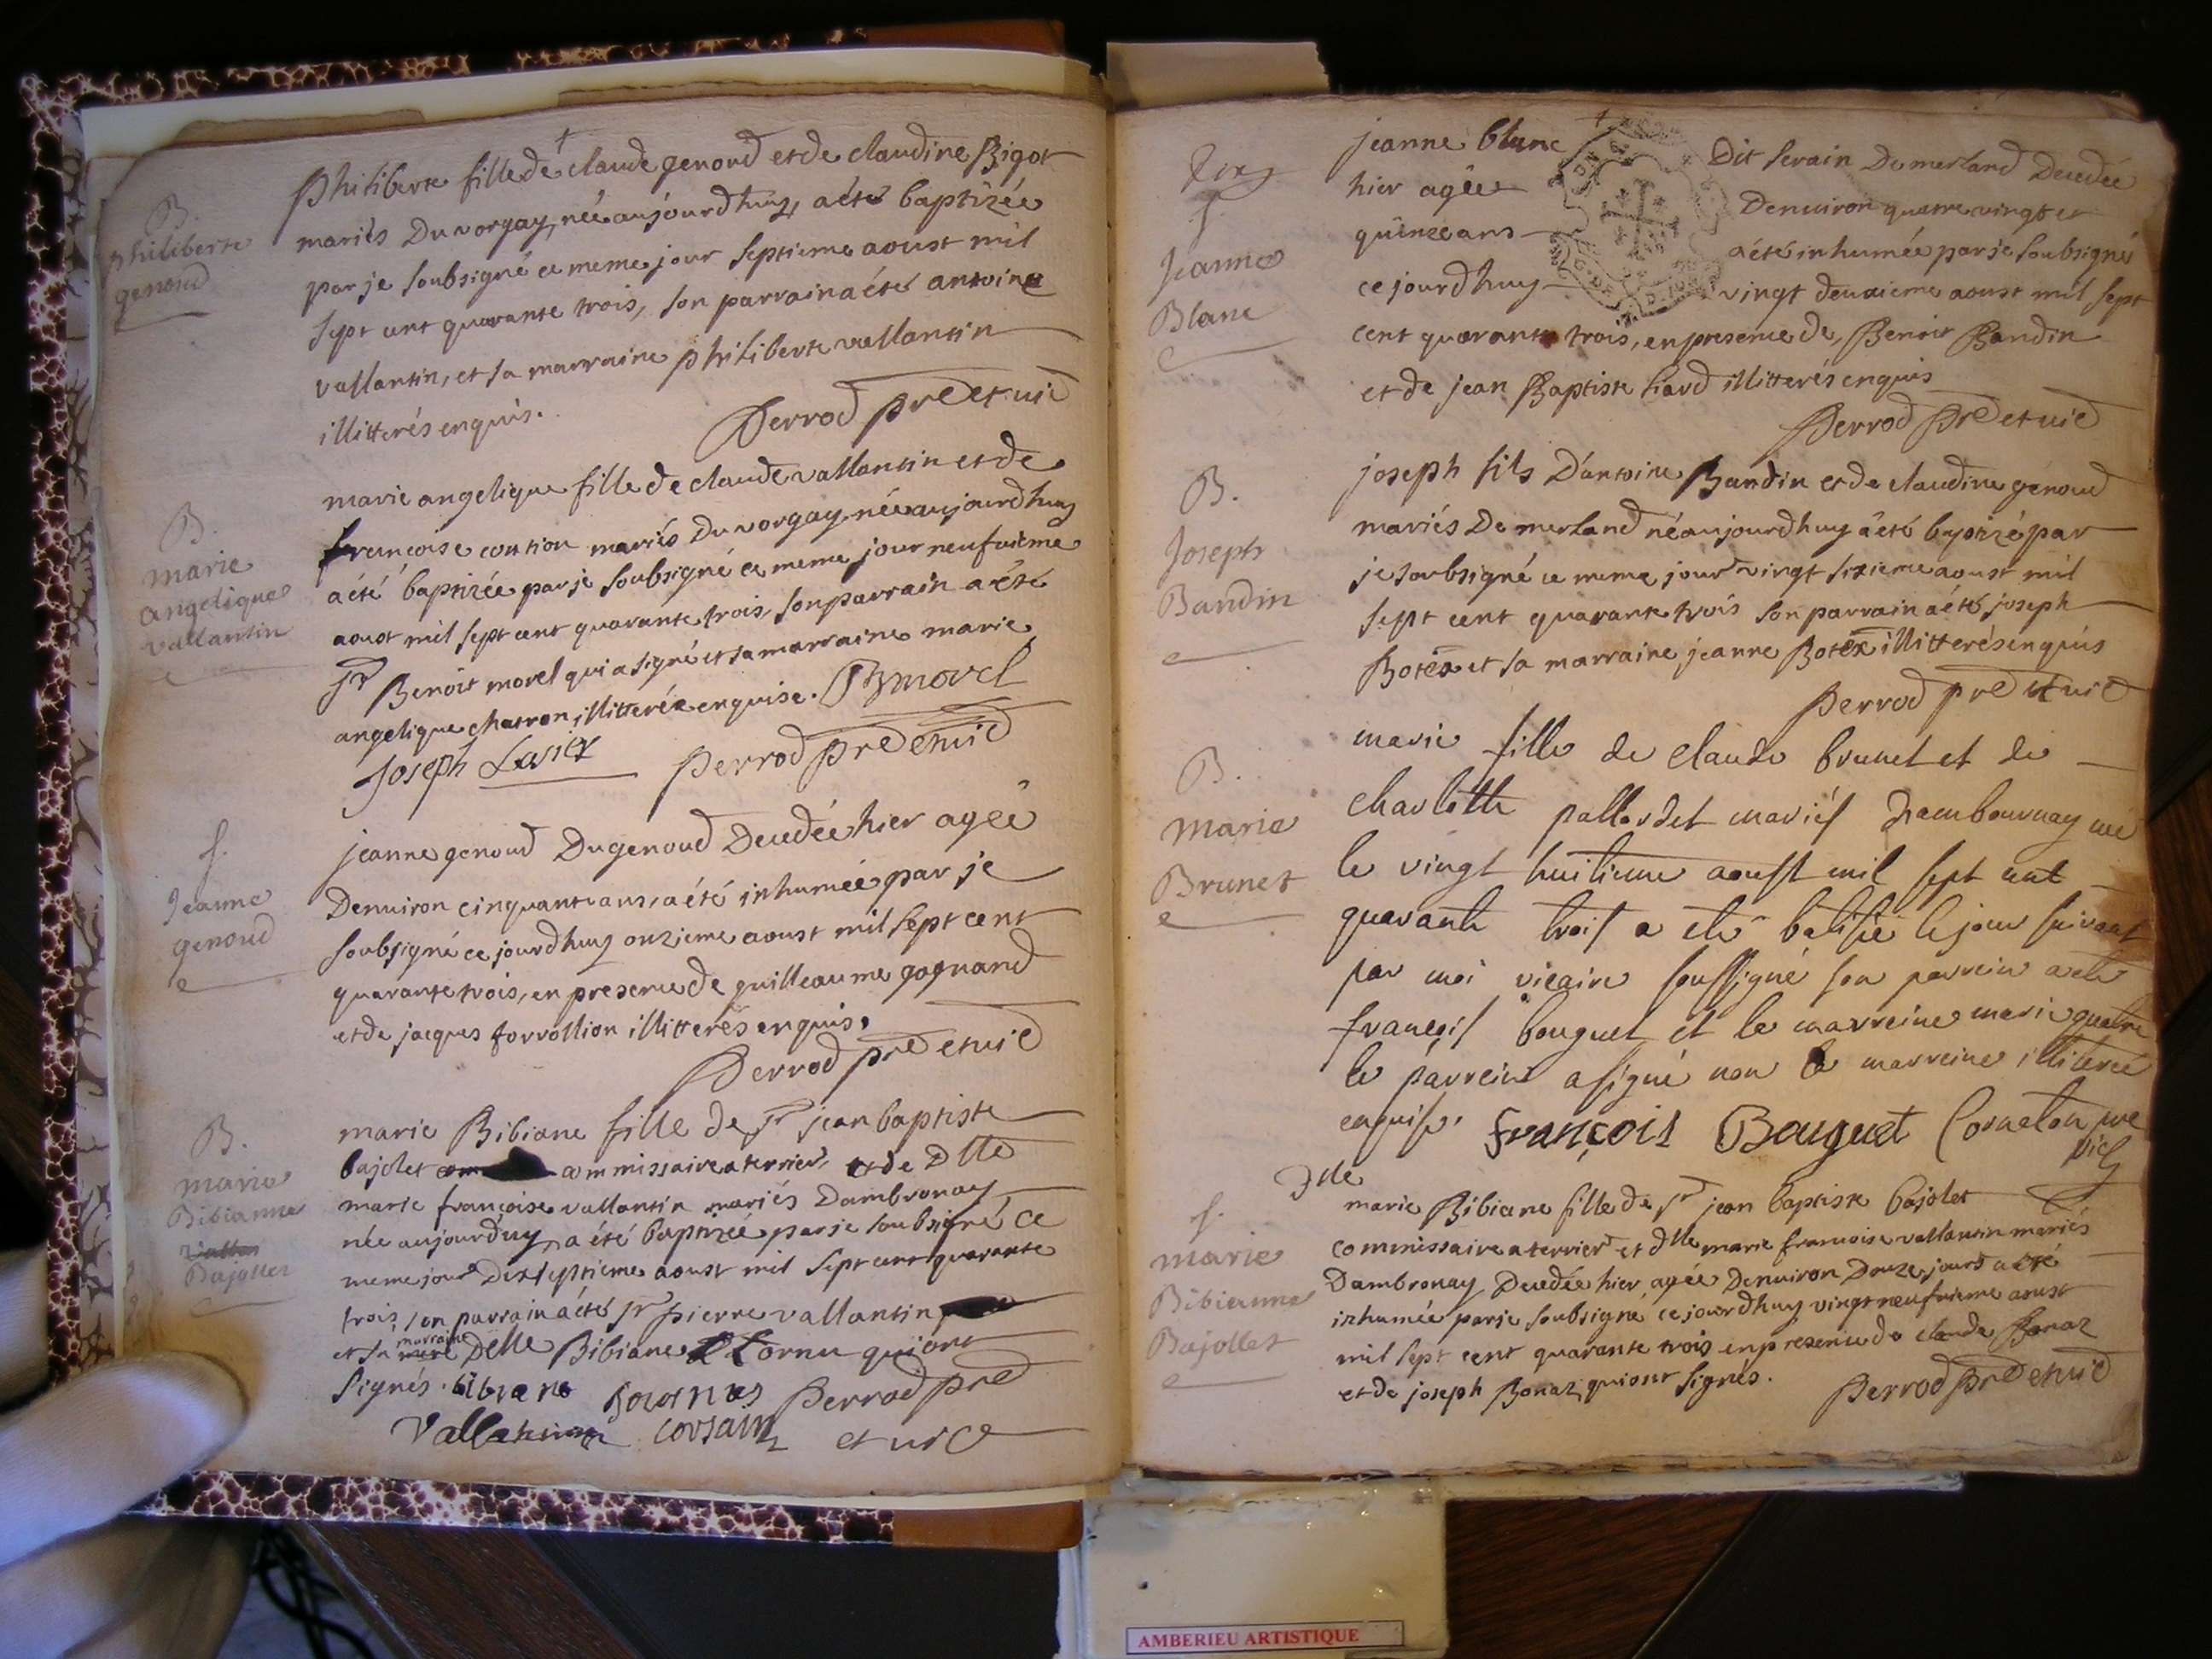 B.
philiberte
genoud
philiberte fille de claude genoud et de claudine Bigot
mariés Du vorgay, née aujourdhuy, a été baptizée
par je soubsigné ce meme jour septieme aoust mil
sept cent quarante trois, son parrain a été antoine
vallantin, et sa marraine philiberte vallantin
illitterés enquis.
Perrod pre et vic
B.
marie
angelique
vallantin
marie angelique fille de claude vallantin et de
françoise mariés Du vorgay née aujourdhuy
a été baptizée par je soubsigné ce meme jour neufvieme
aoust mil sept cent quarante trois, son parrain a été
sr Benoit morel qui a signé et sa marraine marie
angelique chatron, illitterée enquise. B morel
Joseph Lasier Perrod pre et vic
f.
Jeanne
genoud
jeanne genoud Du genoud Decedée hier agée
Denuiron cinquante ans, a été inhumée par je
soubsigné ce jourdhuy onzieme aoust mil sept cent
quarante trois, en presence de guilleaume gagnand
et de jacques forrollion illitterés enquis,
Perrod pre et vic
B.
marie
Bibianne
Bajollet
marie Bibiane fille de sr jean baptiste
bajolet commissaire a terrier, et de Dlle
marie françoise vallantin mariés Dambronay
née aujourduy, a été baptizée par je soubsigné ce
meme jour Dixseptieme aoust mil sept cent quarante
trois, son parrain a été sr pierre vallantin
et sa marraine Delle Bibiane Cornu qui ont
signés. bibiane Perrod pre
Vallantin et vic
f.
Jeanne
Blanc
jeanne blanc Dit serain De merland Decedée
hier agée Denuiron quatre vingt et
quinze ans a été inhumée par je soubsigné
ce jourdhuy vingt deuxieme aoust mil sept
cent quarante trois, en presence de, Benoit Bandin
et de jean Baptiste liard illitterés enquis
Perrod pre et vic
B.
Joseph
Bandin
joseph fils D'antoine Bandin et de claudine genoud
mariés De merland né aujourdhuy a été baptizé par
je soubsigné ce meme jour vingt sixieme aoust mil
sept cent quarante trois son parrain a été, joseph
Botex et sa marraine jeanne Botex illitterés enquis
Perrod pre et vic
B.
Marie
Brunet
marie fille de claude brunet et de
charlotte pallordet mariés Dambournay née
le vingt huitieme aoust mil sept cent
quarante trois a eté batisée le jour suivant
par moi vicaire soussigné son parrein a eté
françois bouguet et la marreine marie quatre
le parrein a signé non la marreine illiterée
enquise. François Bouguet Corneton pre
vic
f.
marie
Bibianne
Bajollet
Dlle
marie Bibiane fille de sr jean baptiste bajolet
commissaire a terrier et dlle marie francoise vallantin mariés
Dambronay Decedée hier agée Denuiron Douze jours a été
inhumée par je soubsigné ce jourdhuy vingt neufvieme aoust
mil sept cent quarante trois en presence de claude Bonaz
et de joseph Bonaz, qui ont signés. Perrod pre et vic
AMBERIEU ARTISTIQUE